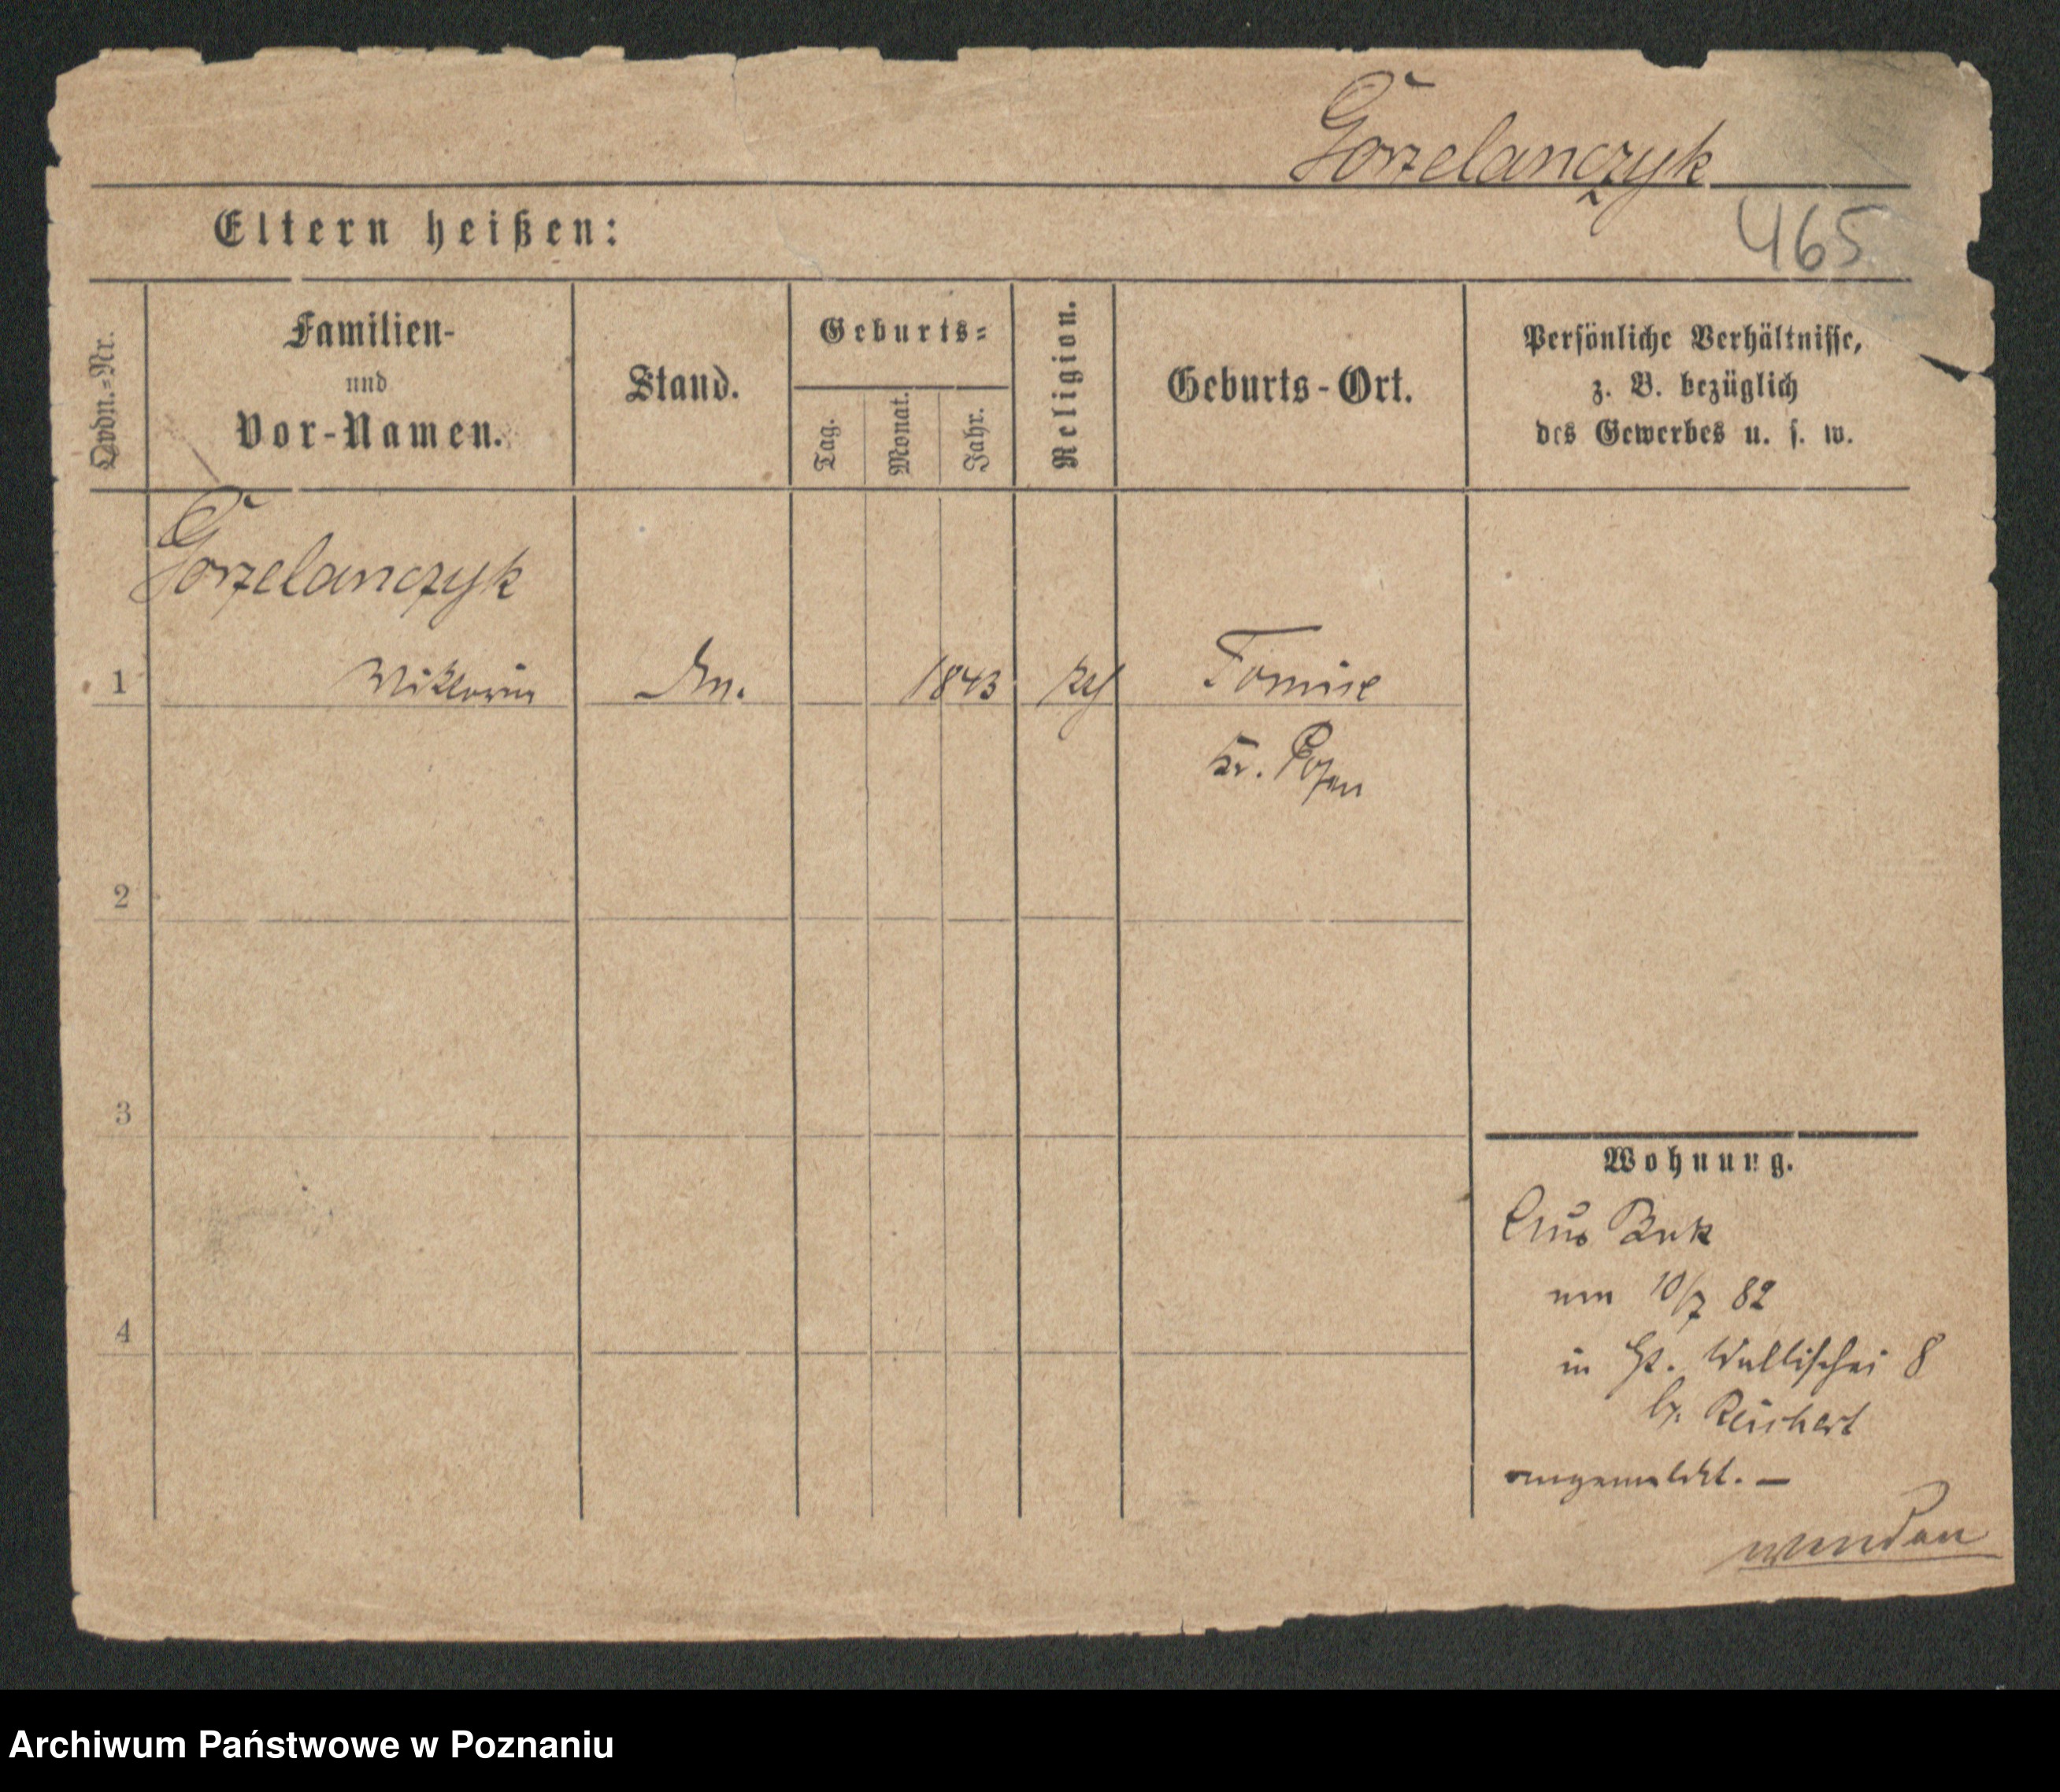 Gorzelanczyk
465
Eltern heißen:
Ordn.-Nr.
Familien-
und
Vor-Namen.
Stand.
Geburts-
Tag.
Monat.
Jahr.
Religion.
Geburts-Ort.
Persönliche Verhältnisse,
z. B. bezüglich
des Gewerbes u. s. w.
Gorzelanczyk
1 Viktoria 1843 Tomice
Kr. Posen
2
3
4
Wohnung.
Aus Buk
am 10/7 82
in Wallischei 8
b. Reichert
angemeldet. —
wenden
Archiwum Państwowe w Poznaniu